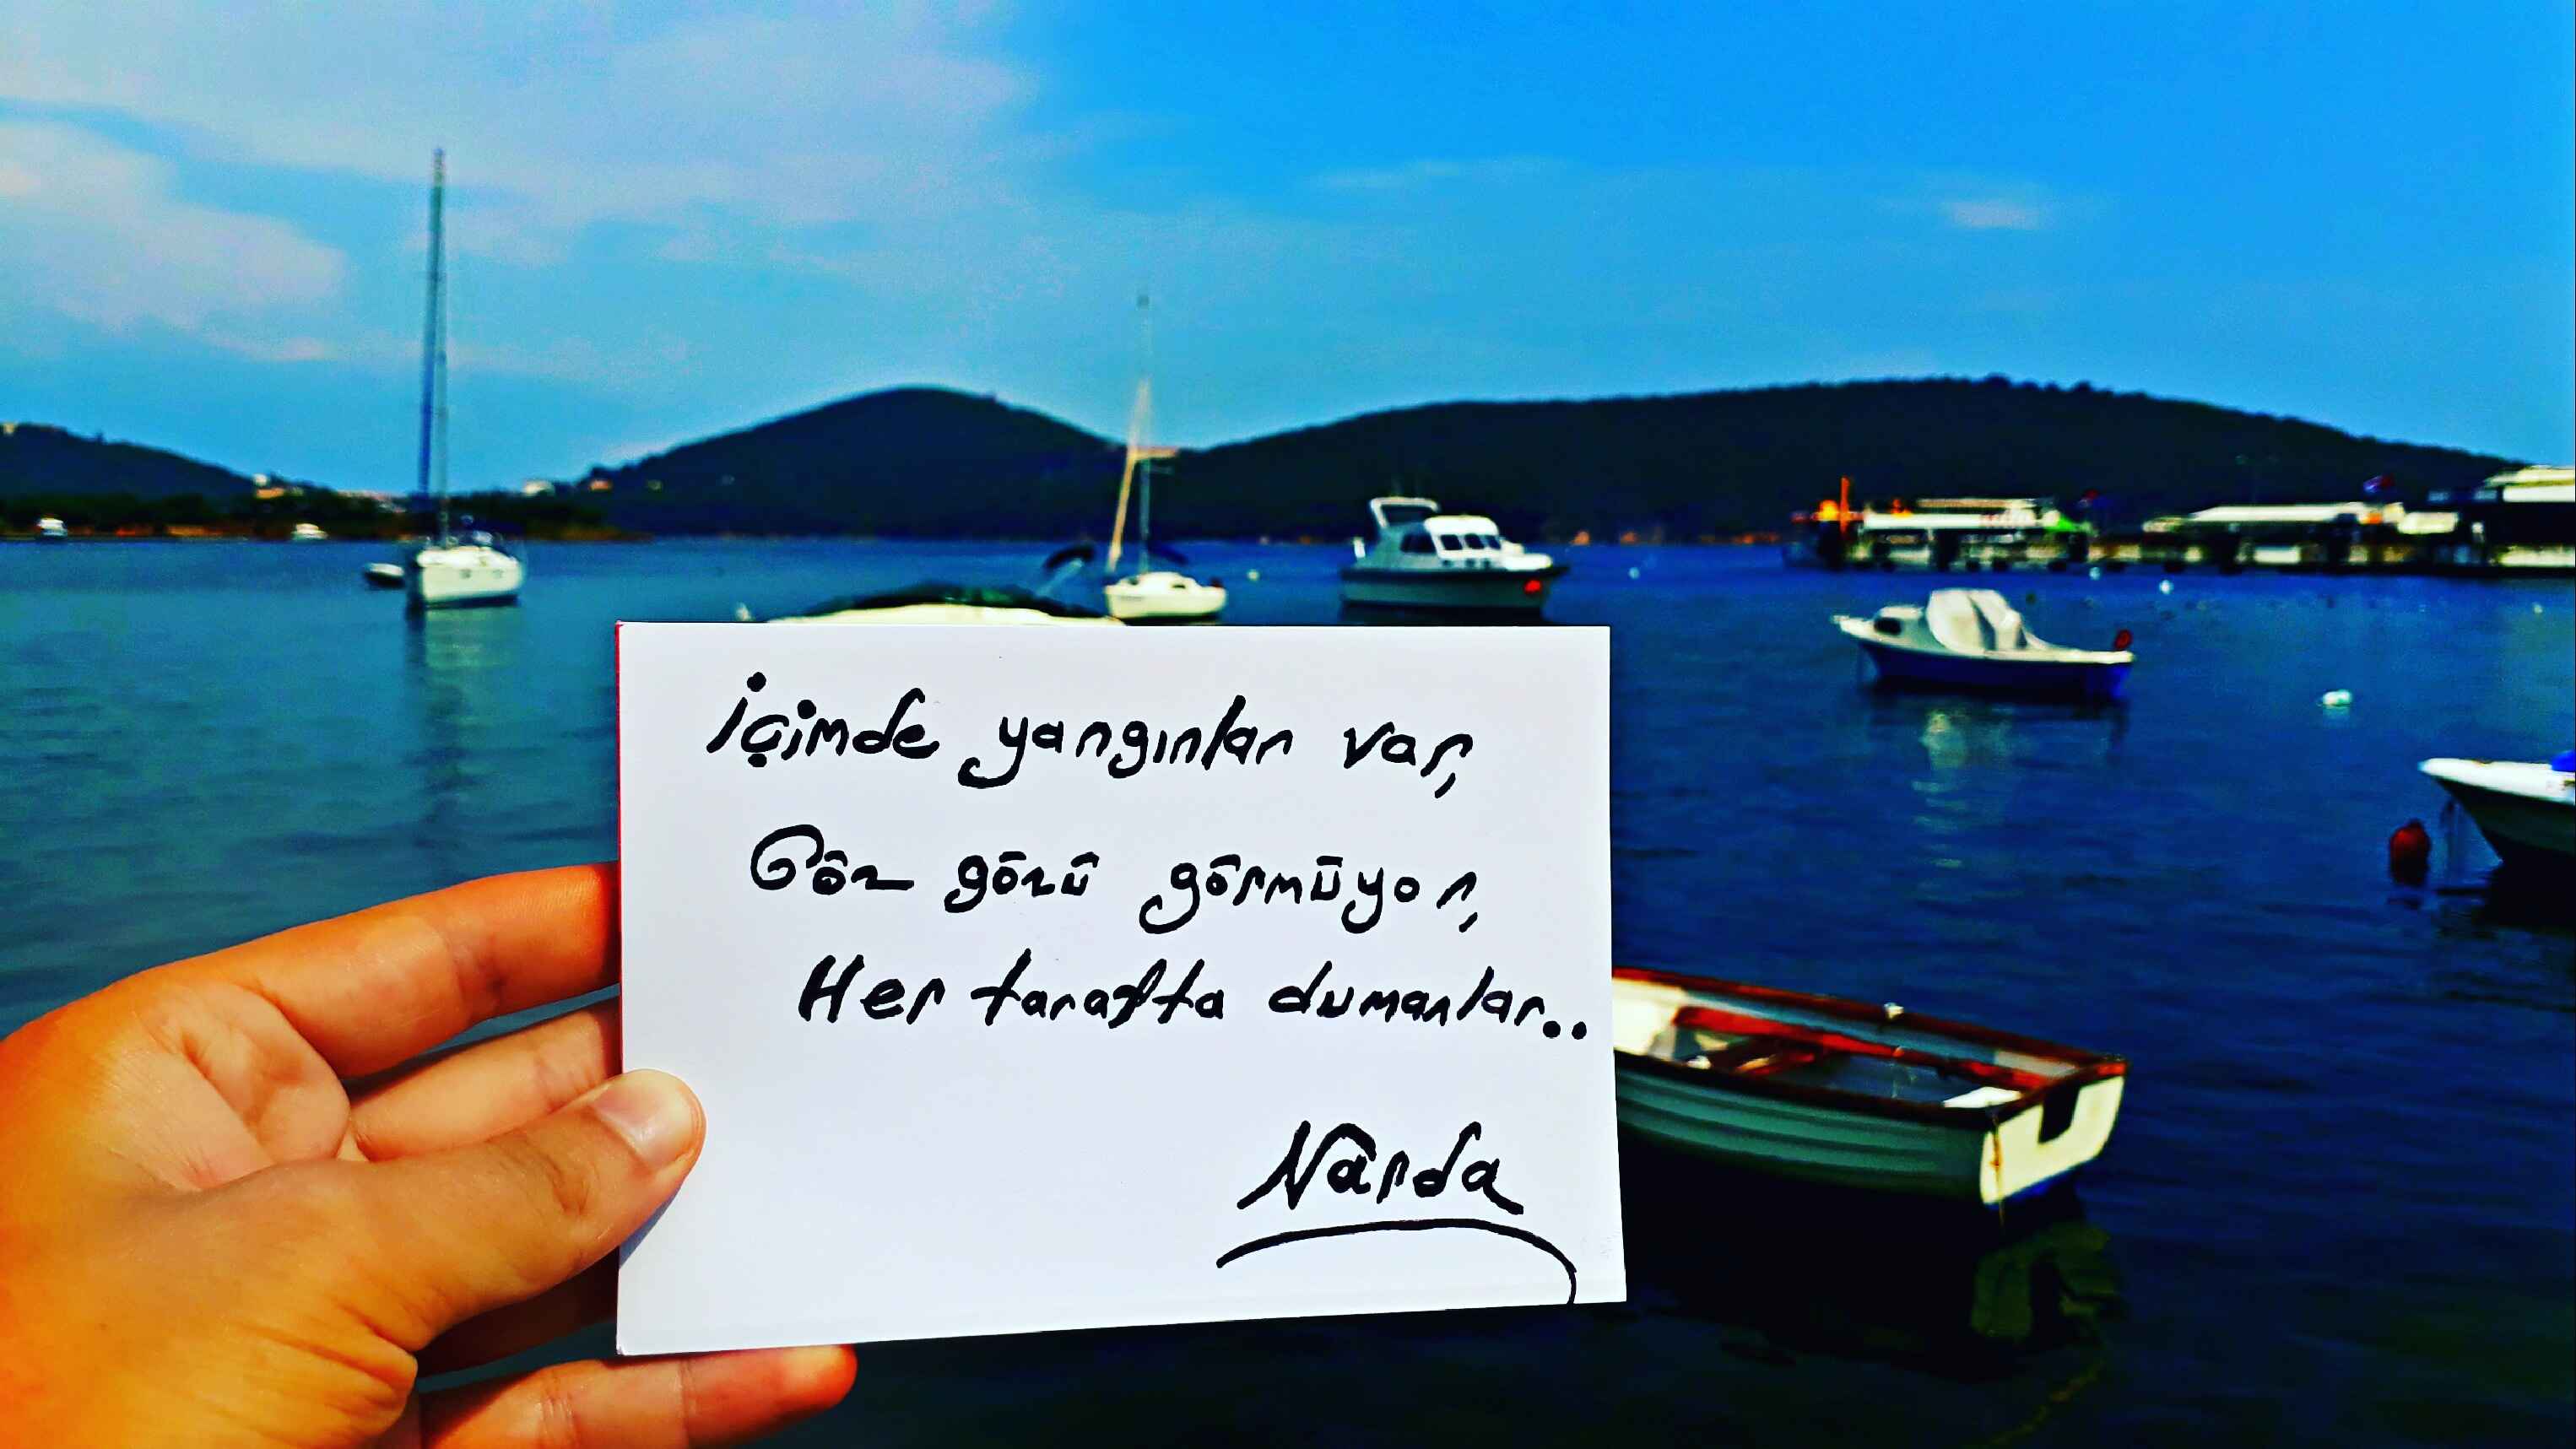 İçimde yangınlar var,
Göz gözü görmüyor,
Her tarafta dumanlar..
Narda